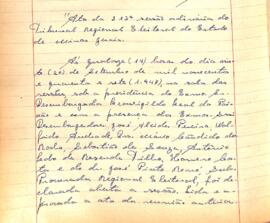 "Ata da 213ª sessão ordinária do
Tribunal Regional Eleitoral do Estado
de Minas Gerais.
Às quatorze (14) horas do dia vin-
te (20) de Setembro de mil novecentos
e quarenta e sete (1.947), na sala das
sessões, sob a presidência do Exmo. Sr.
Desembargador
e com a presença dos Exmos. Srs.
Desembargador José Alcides Pereira,
Drs. Cândido
da Rocha, Sebastião de Souza, Antônio
Lado de Rezende Villa, Homero Cos-
ta e do dr. José Porto
Procurador Regional Eleitoral, foi
declarada aberta a sessão. Lida e a-
provada a ata da reunião anterior